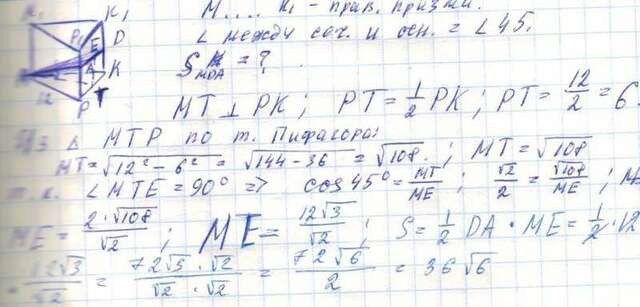 M₁ K₁ M....K₁ - прав. призма.
P₁ D
E ∠ между сеч. и осн. = ∠ 45.
A K S MDA = ?
12 P T MT ⊥ PK; PT = 1/2 PK; PT = 12/2 = 6
Из △ MTP по т. Пифагора:
MT = √12² - 6² = √144 - 36 = √108.; MT = √108
т.к. ∠ MTE = 90° => cos 45° = MT/ME; √2/2 = √108/ME;
ME = 2·√108/√2; ME = 12√3/√2; S = 1/2 DA · ME = 1/2 · 12
· 12√3/√2 = 72√3 · √2/√2 · √2 = 72√6/2 = 36√6